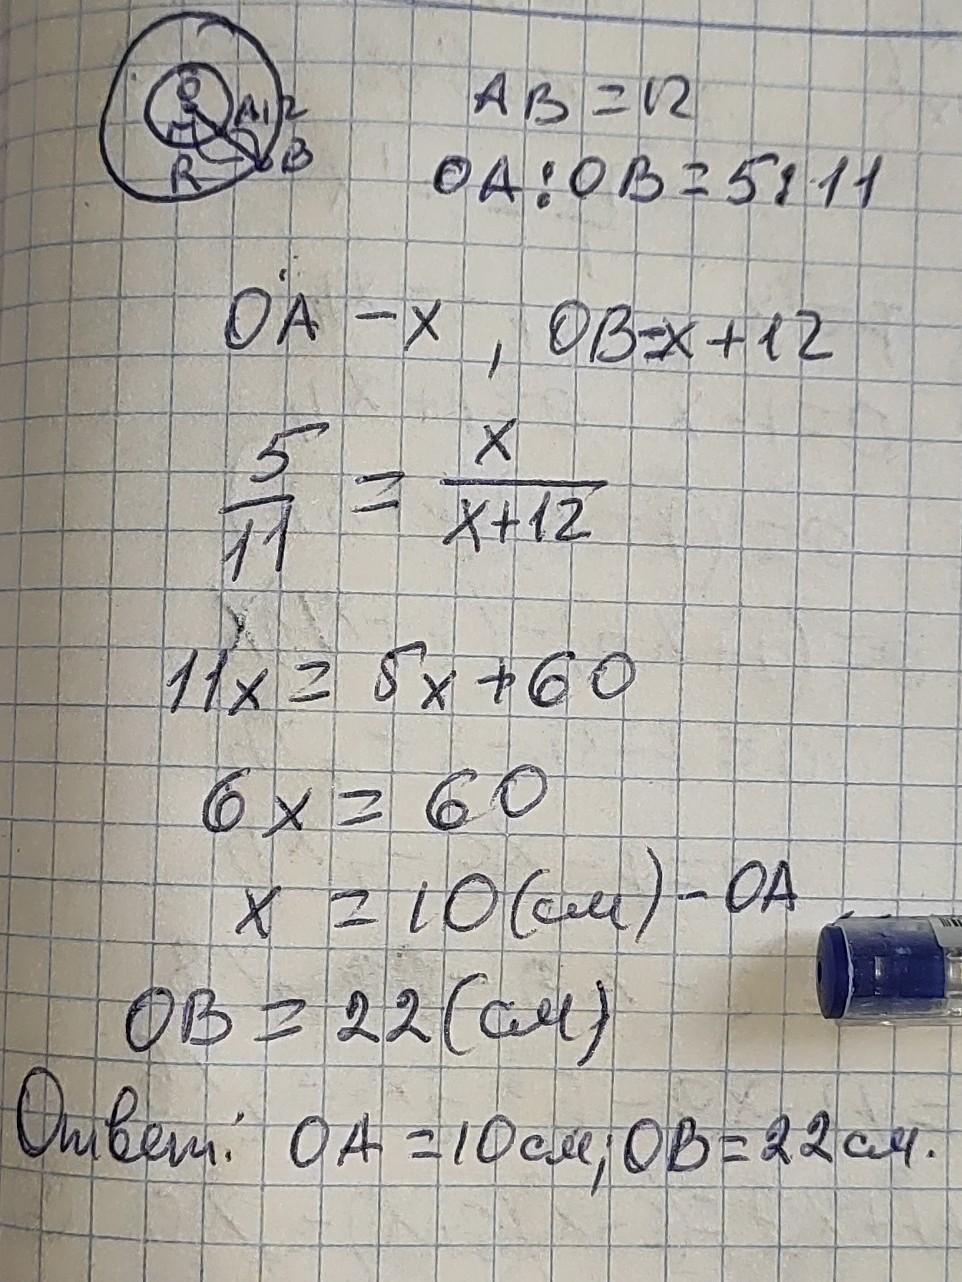 O
A 12
B
R
AB = 12
OA : OB = 5 : 11
OA - x , OB = x + 12
5/11 = x/(x+12)
11x = 5x + 60
6x = 60
x = 10 (см) - OA
OB = 22 (см)
Ответ: OA = 10 см; OB = 22 см.